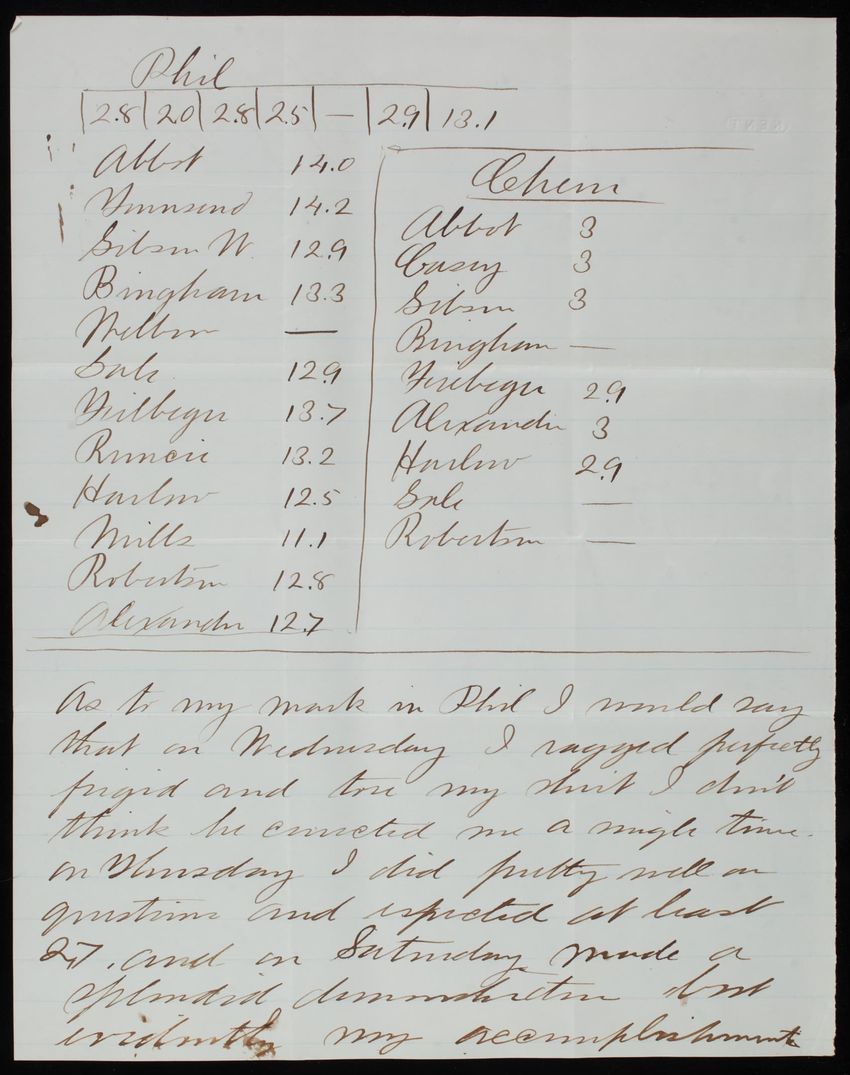 Phil
2.8 | 2.0 | 2.8 | 2.5 | — | 2.9 | 13.1
Abbot 14.0
Townsend 14.2
Gibson W. 12.9
Bingham 13.3
Welborn —
Sale 12.9
13.7
Runcie 13.2
Harlow 12.5
Mills 11.1
Robertson 12.8
Alexander 12.7
Chem
Abbot 3
Casey 3
Gibson 3
Bingham —
2.9
Alexander 3
Harlow 2.9
Sale —
Robertson —
As to my mark in Phil I would say
that on Wednesday I ragged perfectly
frigid and tore my shirt I don't
think he corrected me a single time.
on Thursday I did pretty well on
questions and expected at least
2.7, and on Saturday made a
splendid demonstration but
evidently my accomplishments